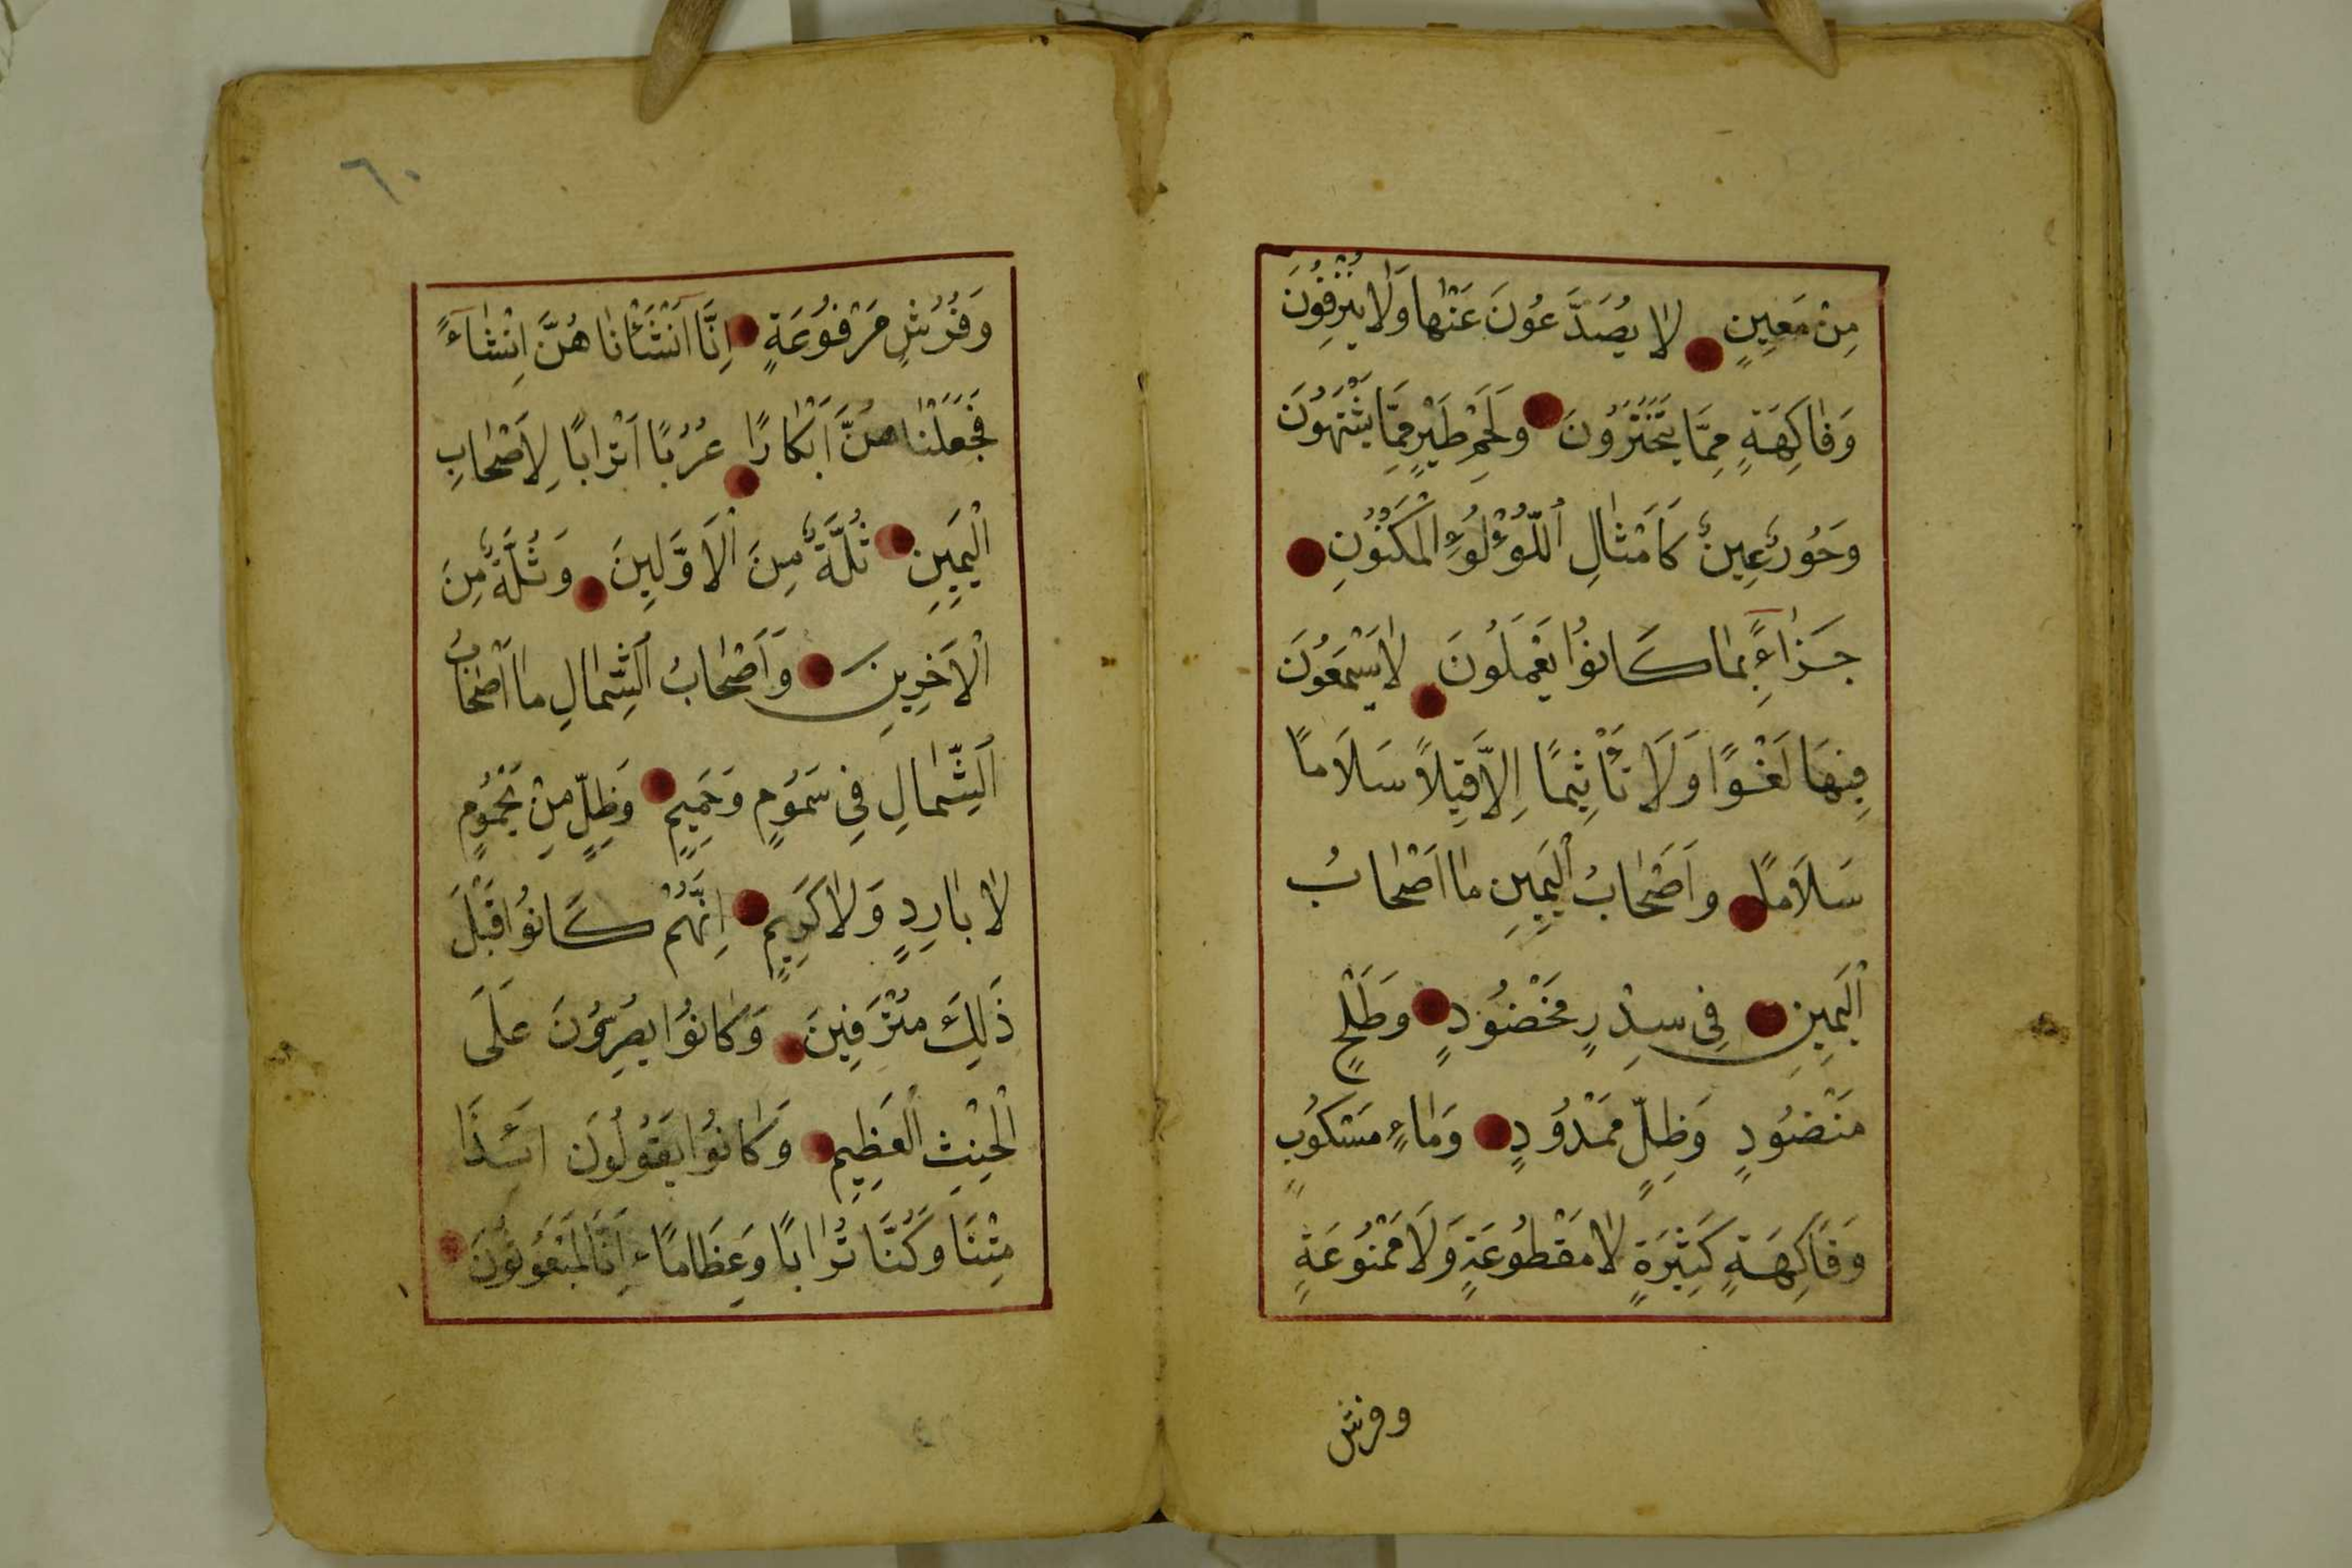 مِنْ مَعِينٍ لَا يُصَدَّعُونَ عَنْهَا وَلَا يُنْزِفُونَ
وَفَاكِهَةٍ مِمَّا يَتَخَيَّرُونَ وَلَحْمِ طَيْرٍ مِمَّا يَشْتَهُونَ
وَحُورٌ عِينٌ كَاَمْثَالِ اللُّؤْلُوءِ الْمَكْنُونِ
جَزَاءً بِمَا كَانُوا يَعْمَلُونَ لَا يَسْمَعُونَ
فِيهَا لَغْوًا وَلَا تَأْثِيمًا اِلَّا قِيلًا سَلَامًا
سَلَامًا وَاَصْحَابُ الْيَمِينِ مَا اَصْحَابُ
الْيَمِينِ فِى سِدْرٍ مَخْضُودٍ وَطَلْحٍ
مَنْضُودٍ وَظِلٍّ مَمْدُودٍ وَمَاءٍ مَسْكُوبٍ
وَفَاكِهَةٍ كَثِيرَةٍ لَا مَقْطُوعَةٍ وَلَا مَمْنُوعَةٍ
وفرش
٦٠
وَفُرُشٍ مَرْفُوعَةٍ اِنَّا اَنْشَأْنَاهُنَّ اِنْشَاءً
فَجَعَلْنَاهُنَّ اَبْكَارًا عُرُبًا اَتْرَابًا لِاَصْحَابِ
الْيَمِينِ ثُلَّةٌ مِنَ الْاَوَّلِينَ وَثُلَّةٌ مِنَ
الْاَخِرِينَ وَاَصْحَابُ الشِّمَالِ مَا اَصْحَابُ
الشِّمَالِ فِى سَمُومٍ وَحَمِيمٍ وَظِلٍّ مِنْ يَحْمُومٍ
لَا بَارِدٍ وَلَا كَرِيمٍ اِنَّهُمْ كَانُوا قَبْلَ
ذَلِكَ مُتْرَفِينَ وَكَانُوا يُصِرُّونَ عَلَى
الْحِنْثِ الْعَظِيمِ وَكَانُوا يَقُولُونَ اَئِذَا
مِتْنَا وَكُنَّا تُرَابًا وَعِظَامًا ءَاِنَّا لَمَبْعُوثُونَ